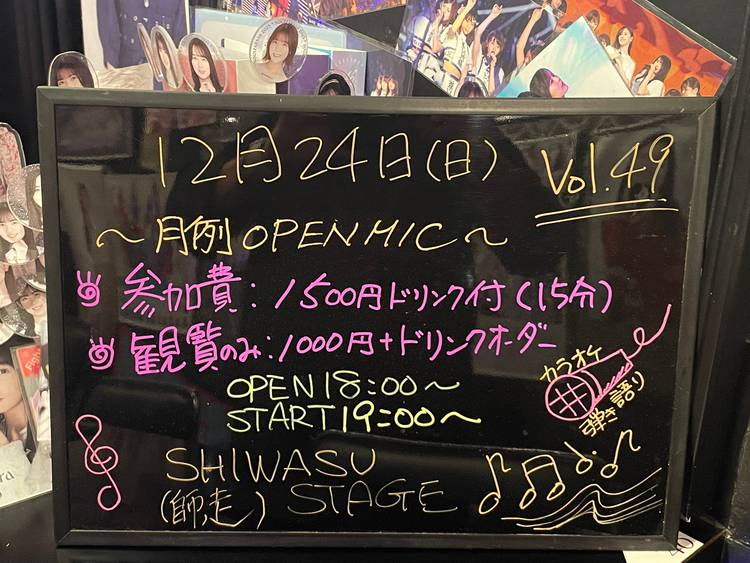 12月24日(日)
Vol.49
～月例OPEN MIC～
参加費:1500円ドリンク付(15分)
観覧のみ:1000円+ドリンクオーダー
カラオケ
弾き語り
OPEN 18:00～
START 19:00～
SHIWASU
(師走) STAGE